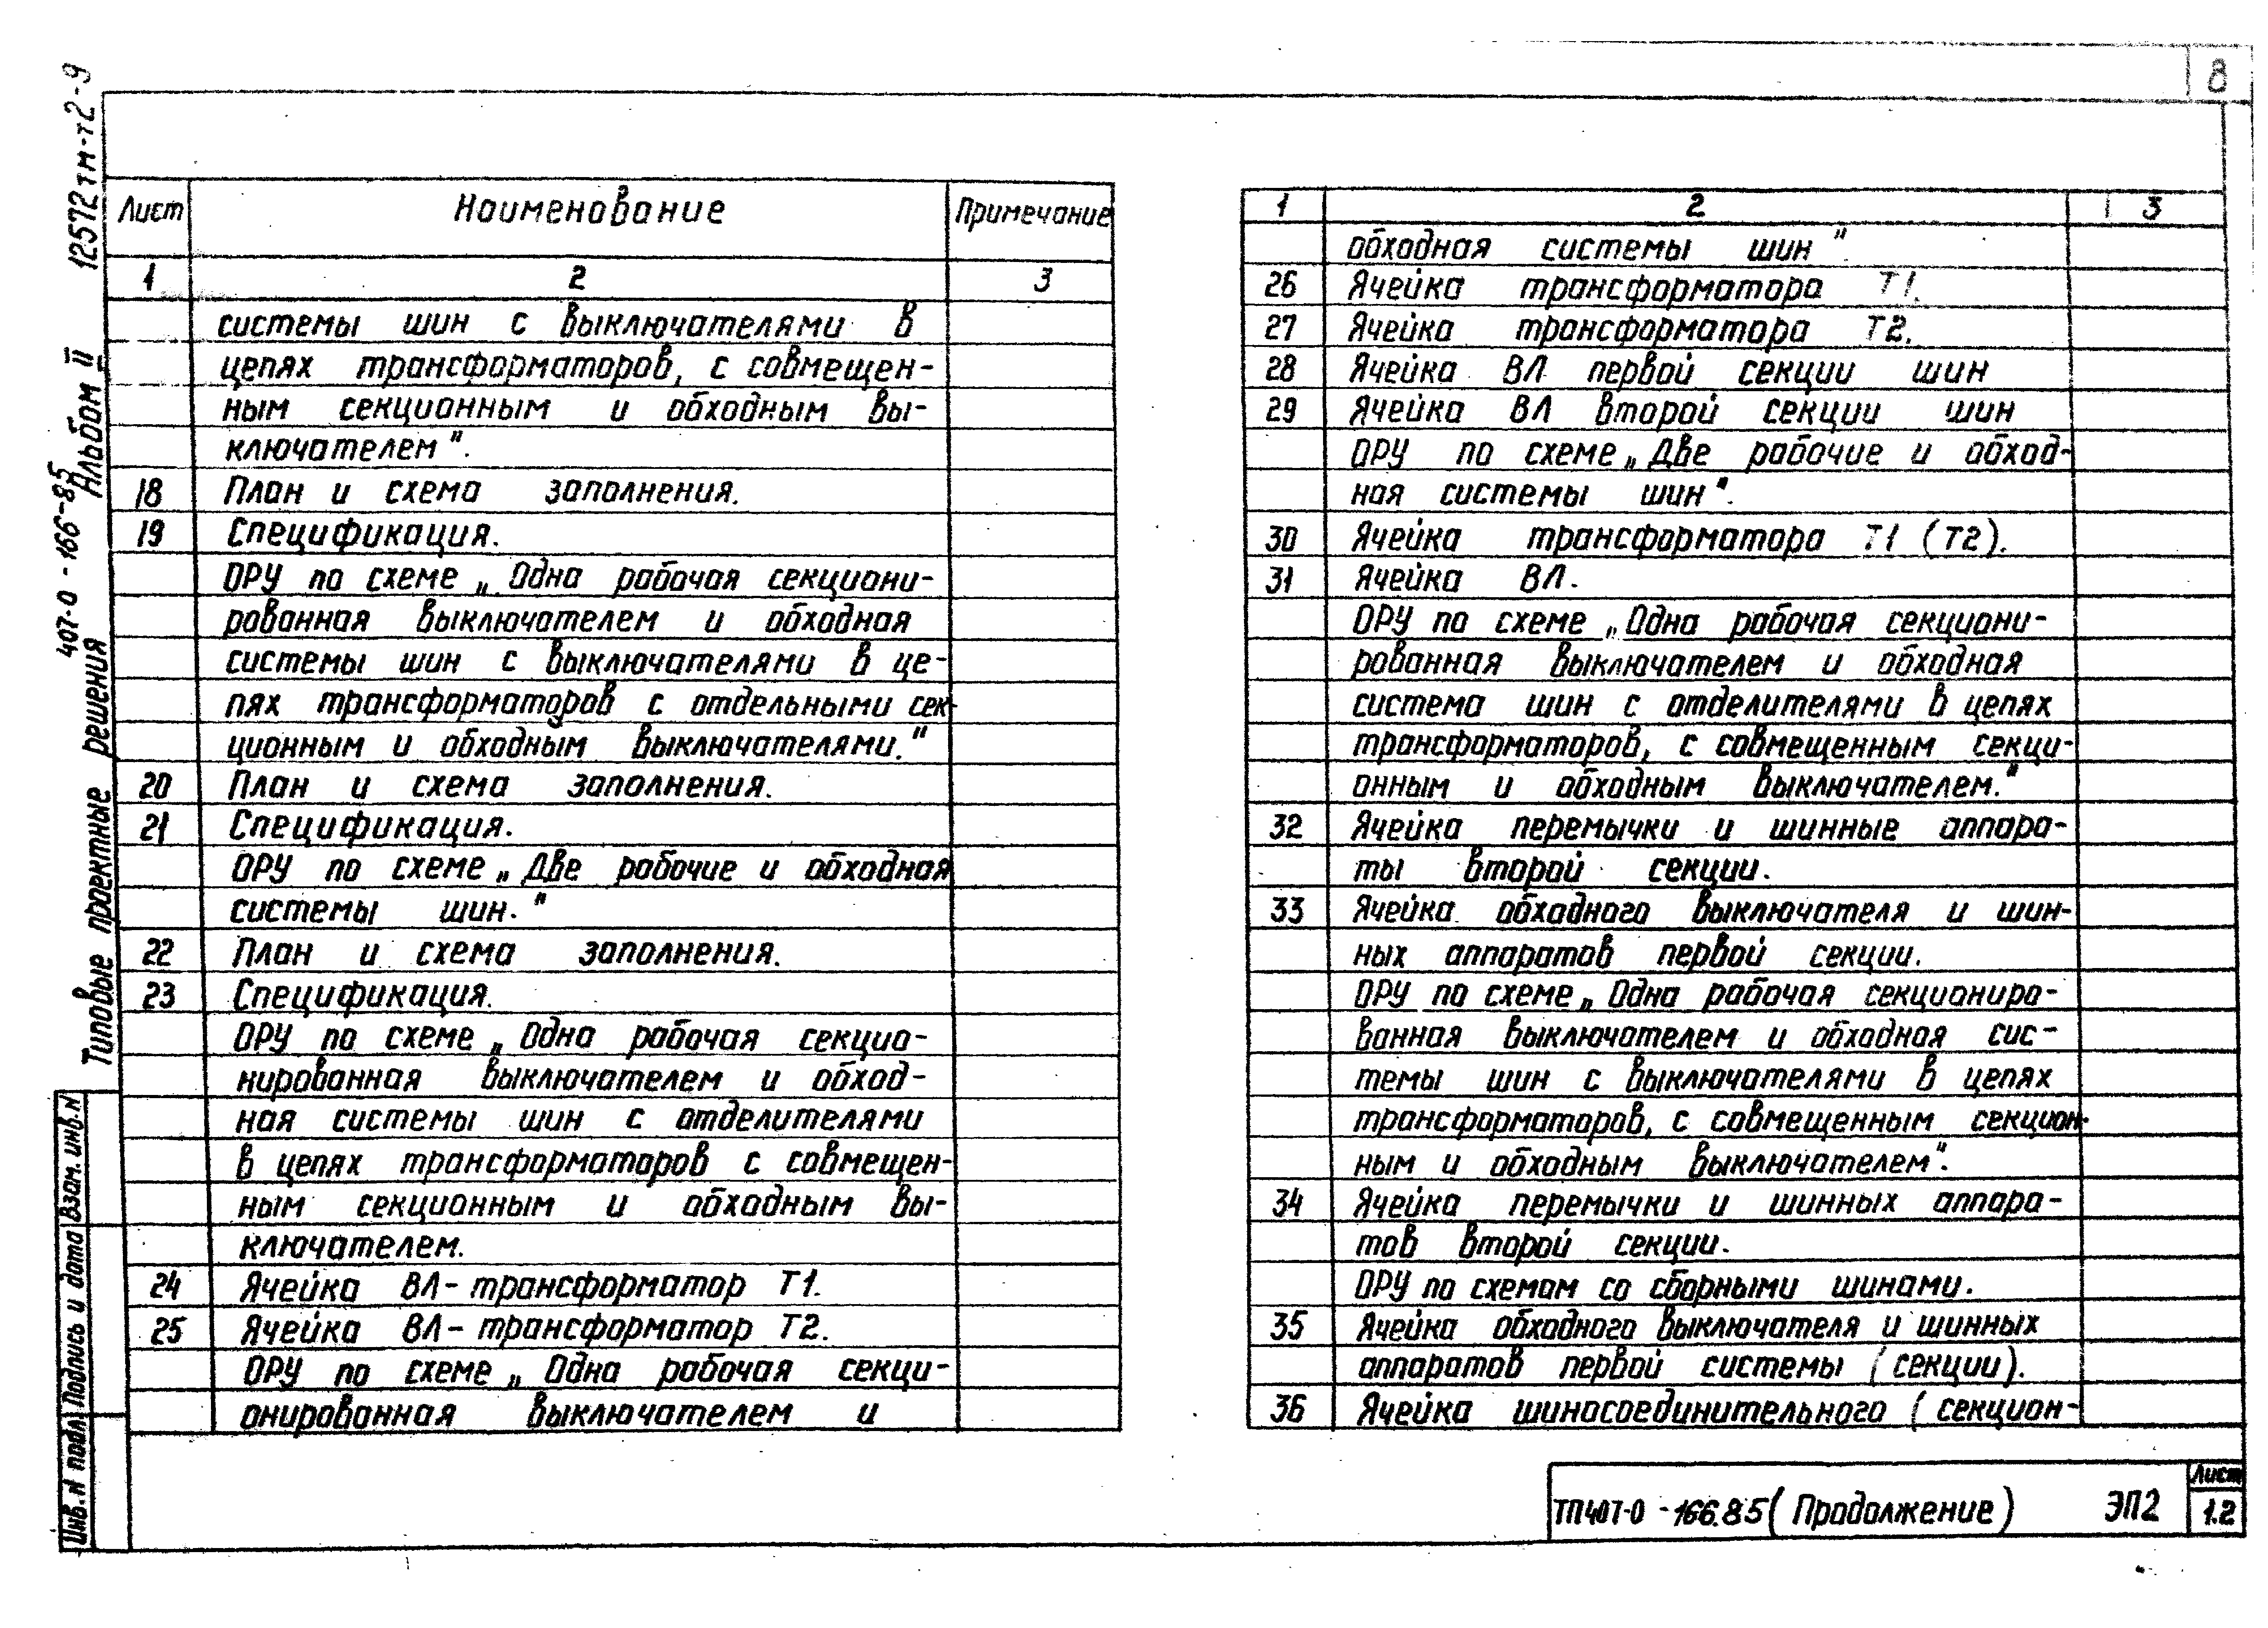 8
12572тм-т2-9
Альбом II
407-0-166-85
Типовые проектные решения
Взам. инв. N
Подпись и дата
Инв. N подл.
Лист Наименование Примечание
1 2 3
системы шин с выключателями в
цепях трансформаторов, с совмещен-
ным секционным и обходным вы-
ключателем".
18 План и схема заполнения.
19 Спецификация.
ОРУ по схеме „Одна рабочая секциони-
рованная выключателем и обходная
системы шин с выключателями в це-
пях трансформаторов с отдельными сек-
ционным и обходным выключателями."
20 План и схема заполнения.
21 Спецификация.
ОРУ по схеме „Две рабочие и обходная
системы шин."
22 План и схема заполнения.
23 Спецификация.
ОРУ по схеме „Одна рабочая секцио-
нированная выключателем и обход-
ная системы шин с отделителями
в цепях трансформаторов с совмещен-
ным секционным и обходным вы-
ключателем.
24 Ячейка ВЛ-трансформатор Т1.
25 Ячейка ВЛ-трансформатор Т2.
ОРУ по схеме „Одна рабочая секци-
онированная выключателем и
1 2 3
обходная системы шин".
26 Ячейка трансформатора Т1.
27 Ячейка трансформатора Т2.
28 Ячейка ВЛ первой секции шин
29 Ячейка ВЛ второй секции шин
ОРУ по схеме „Две рабочие и обход-
ная системы шин".
30 Ячейка трансформатора Т1 (Т2).
31 Ячейка ВЛ.
ОРУ по схеме „Одна рабочая секциони-
рованная выключателем и обходная
система шин с отделителями в цепях
трансформаторов, с совмещенным секци-
онным и обходным выключателем."
32 Ячейка перемычки и шинные аппара-
ты второй секции.
33 Ячейка обходного выключателя и шин-
ных аппаратов первой секции.
ОРУ по схеме „Одна рабочая секциониро-
ванная выключателем и обходная сис-
темы шин с выключателями в цепях
трансформаторов, с совмещенным секцион-
ным и обходным выключателем".
34 Ячейка перемычки и шинных аппара-
тов второй секции.
ОРУ по схемам со сборными шинами.
35 Ячейка обходного выключателя и шинных
аппаратов первой системы (секции).
36 Ячейка шиносоединительного (секцион-
ТП407-0-166.85 (Продолжение) ЭП2
Лист
1.2